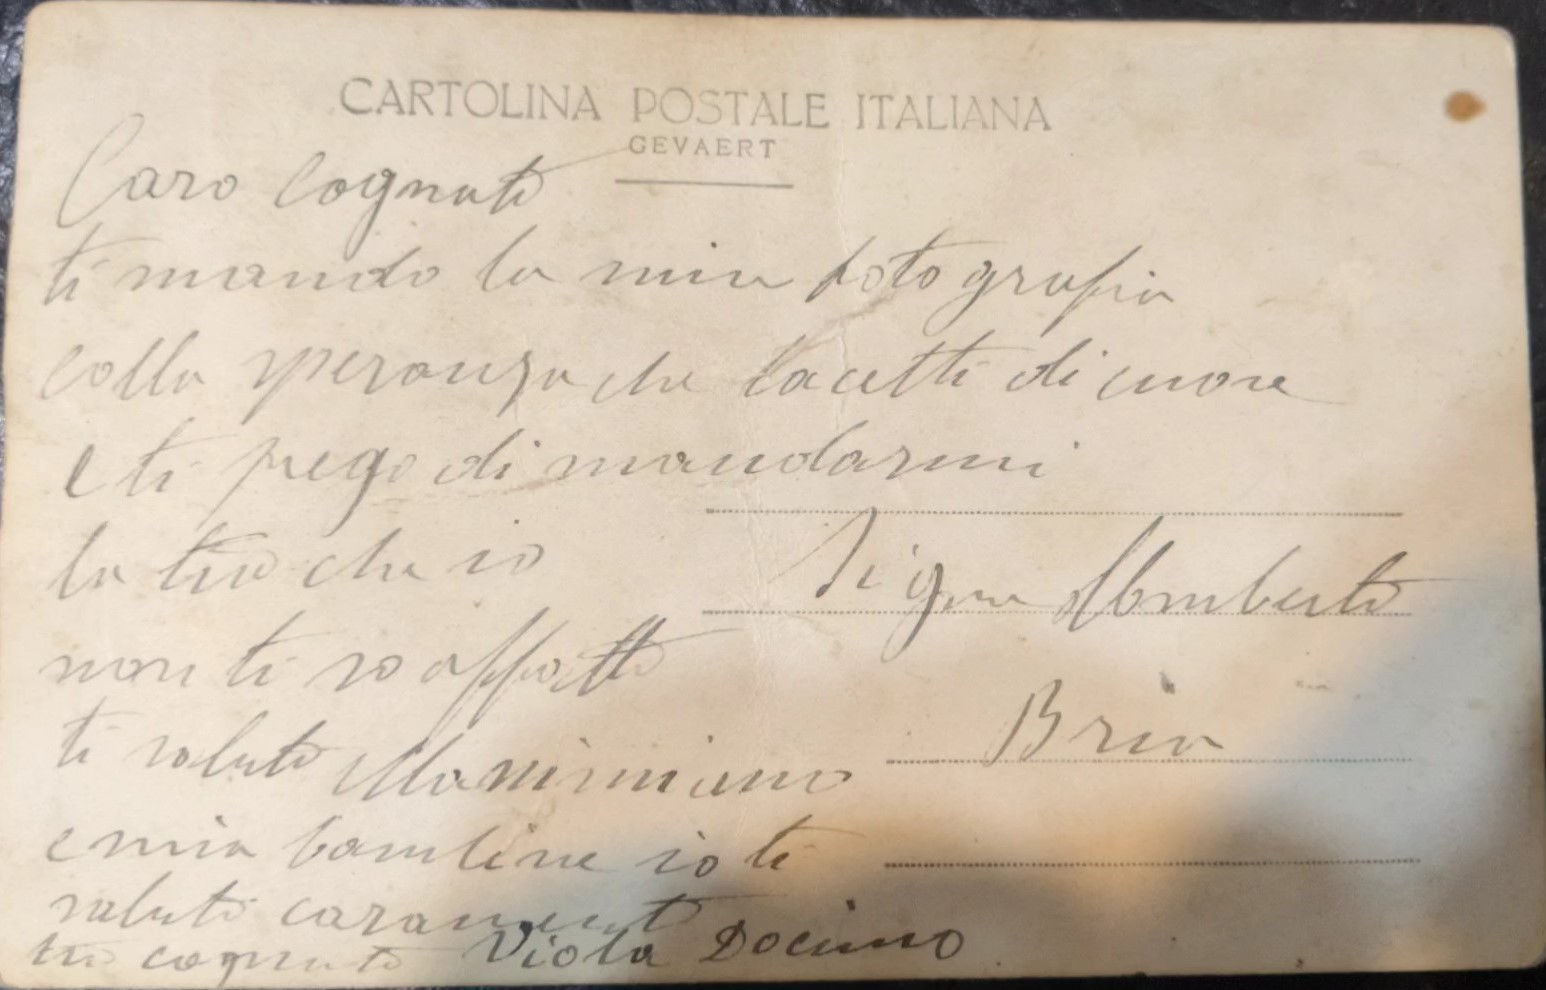 CARTOLINA POSTALE ITALIANA
GEVAERT
Caro Cognato
ti mando la mia fotografia
colla speranza che lacetti di cuore
e ti prego di mandarmi
la tua che io
non ti so affatto
ti saluto Massimiano
e mia bambine io ti
saluto carament
tuo cognato Viola Docimo
Signor Umberto
Bria